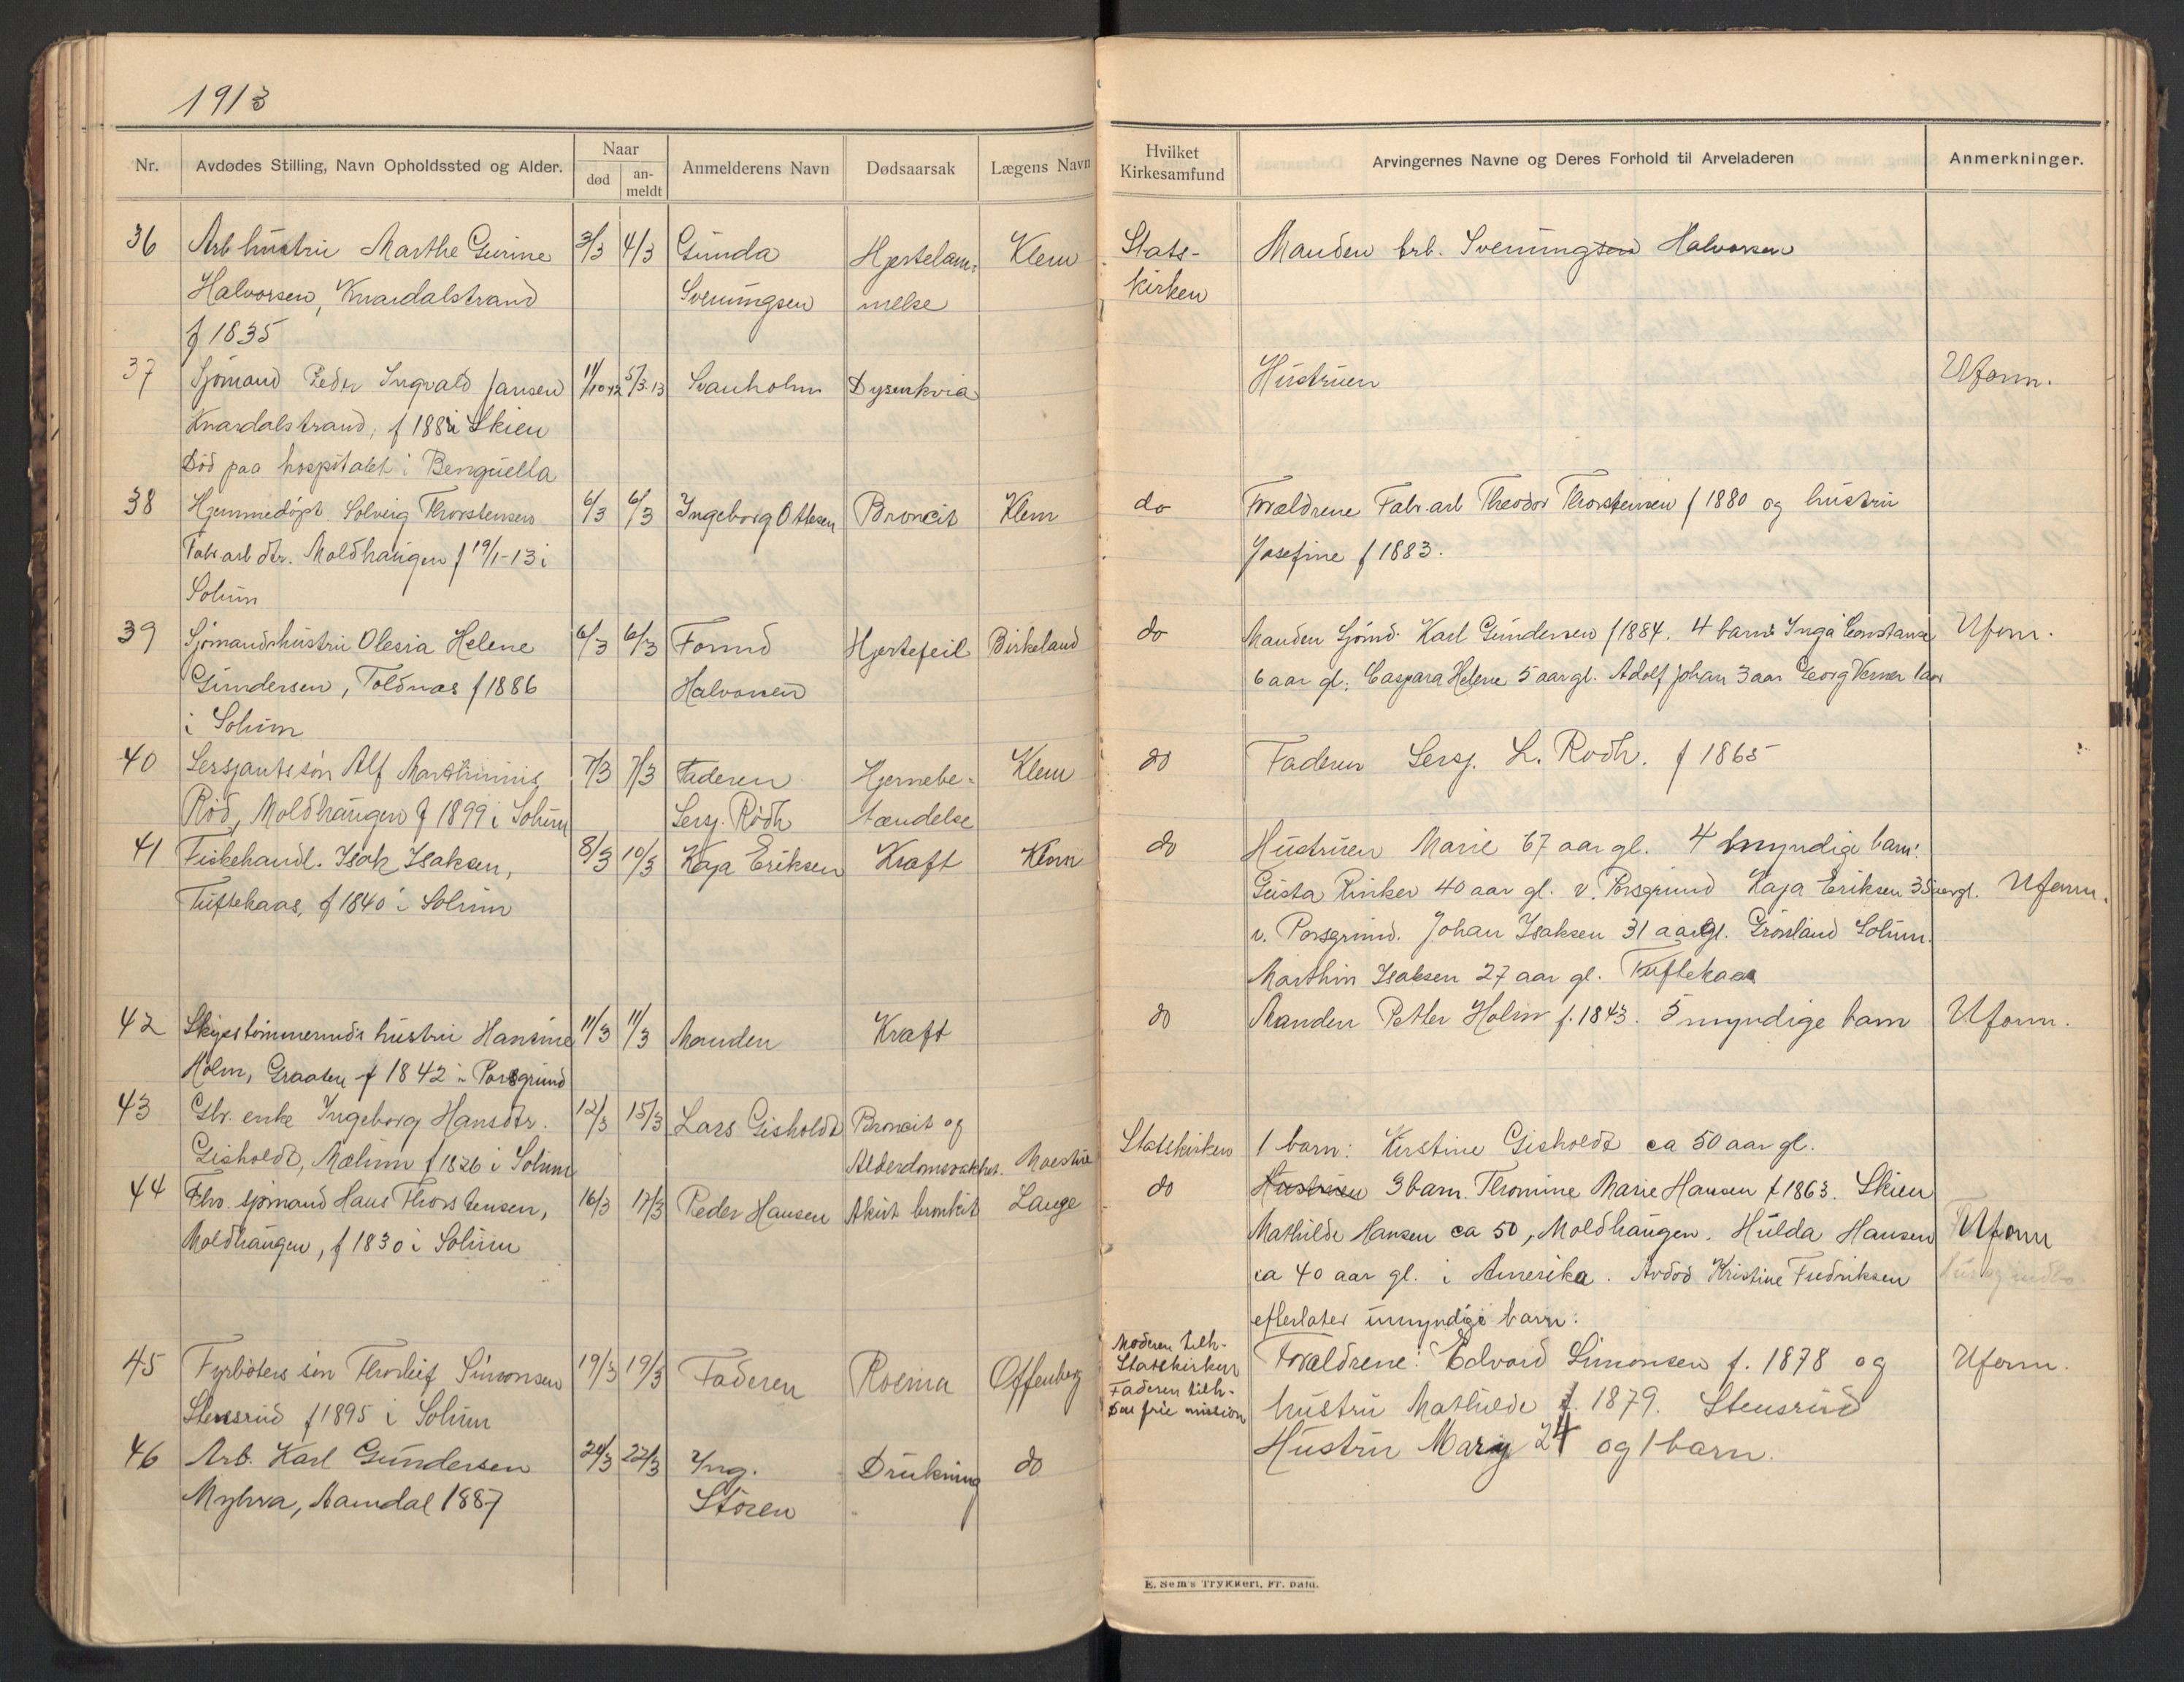 1913
Nr. Avdødes Stilling, Navn Opholdssted og Alder. Naar død an-meldt Anmelderens Navn Dødsaarsak Lægens Navn
36 Arb hustru Marthe Gurine 3/3 4/3 Gunda Hjertelam- Klem
Halvorsen, Knardalstrand Sveningsen melse
f 1835
37 Sjømand Peder Ingvald Jansen 11/10 12 5/3 13 Svanholm Dysenkria
Knardalstrand, f 188 i Skien
Død paa hospitalet i Benguella
38 Hjemmedøpt Solveig Thorstensen 6/3 6/3 Ingeborg Ottesen Broncit Klem
Fabr arb dtr. Moldhaugen f 19/1-13 i
Solum
39 Sjømandshustru Olesia Helene 6/3 6/3 Formd Hjertefeil Birkeland
Gundersen, Toldnæs f 1886 Halvorsen
i Solum
40 Sersjants søn Alf Marthinius 7/3 7/3 Faderen Hjernebe- Klem
Rød, Moldhaugen f 1899 i Solum Sersj. Rødh tændelse
41 Fiskehandl. Isak Isaksen, 8/3 10/3 Kaja Eriksen Kraft Klem
Tuftekaas, f 1840 i Solum
42 Skipstømmermds hustru Hansine 11/3 11/3 Manden Kraft
Holm, Graaten f 1842 i Porsgrund
43 Gbr. enke Ingeborg Hansdtr. 12/3 15/3 Lars Gisholdt Broncit og
Gisholdt, Mælum f 1826 i Solum Alderdomssvakhet. Maestue
44 Fhv. sjømand Hans Thorstensen, 16/3 17/3 Peder Hansen Akut bronkit Lange
Moldhaugen, f 1830 i Solum
45 Fyrbøters søn Thorleif Simonsen 19/3 19/3 Faderen Roema Offenberg
Stensrud f 1895 i Solum
46 Arb. Karl Gundersen 20/3 22/3 Ing. Drukning do
Myhra, Aamdal 1887 Støren
Hvilket Kirkesamfund Arvingernes Navne og Deres Forhold til Arveladeren Anmerkninger.
Stats- Manden arb. Sveningsen Halvorsen
kirken
Hustruen Uform.
do Forældrene Fabr. arb Theodor Thorstensen f 1880 og hustru
Josefine f 1883.
do Manden Sjømd. Karl Gundersen f 1884. 4 barn: Inga Constanse Uform.
6 aar gl. Caspara Helene 5 aar gl. Adolf Johan 3 aar Georg Verner 1 aar
do Faderen Sersj. L. Rødh. f 1865
do Hustruen Marie 67 aar gl. 4 myndig barn:
Gusta Rinker 40 aar gl. v. Porsgrund Kaja Eriksen 35 aar gl. Uform.
v. Porsgrund. Johan Isaksen 31 aar gl. Grønland Solum.
Marthin Isaksen 27 aar gl. Tuftekaas
do Manden Petter Holm f. 1843. 5 myndige barn Uform.
Statskirken 1 barn: Kirstine Gisholdt ca 50 aar gl.
do Hustruen 3 barn. Thomine Marie Hansen f 1863. Skien
Mathilde Hansen ca 50, Moldhaugen. Hulda Hansen Uform
ca 40 aar gl. i Amerika. Avdød Kristine Fredriksen
efterlater umyndige barn:
Moderen tilh. Statskirken Forældrene: Edvard Simonsen f. 1878 og Uform.
Faderen tilh. Den frie mission hustru Mathilde f. 1879. Stensrud
Hustru Mary 24 og 1 barn.
E. Sem's Trykkeri, Fr. hald.